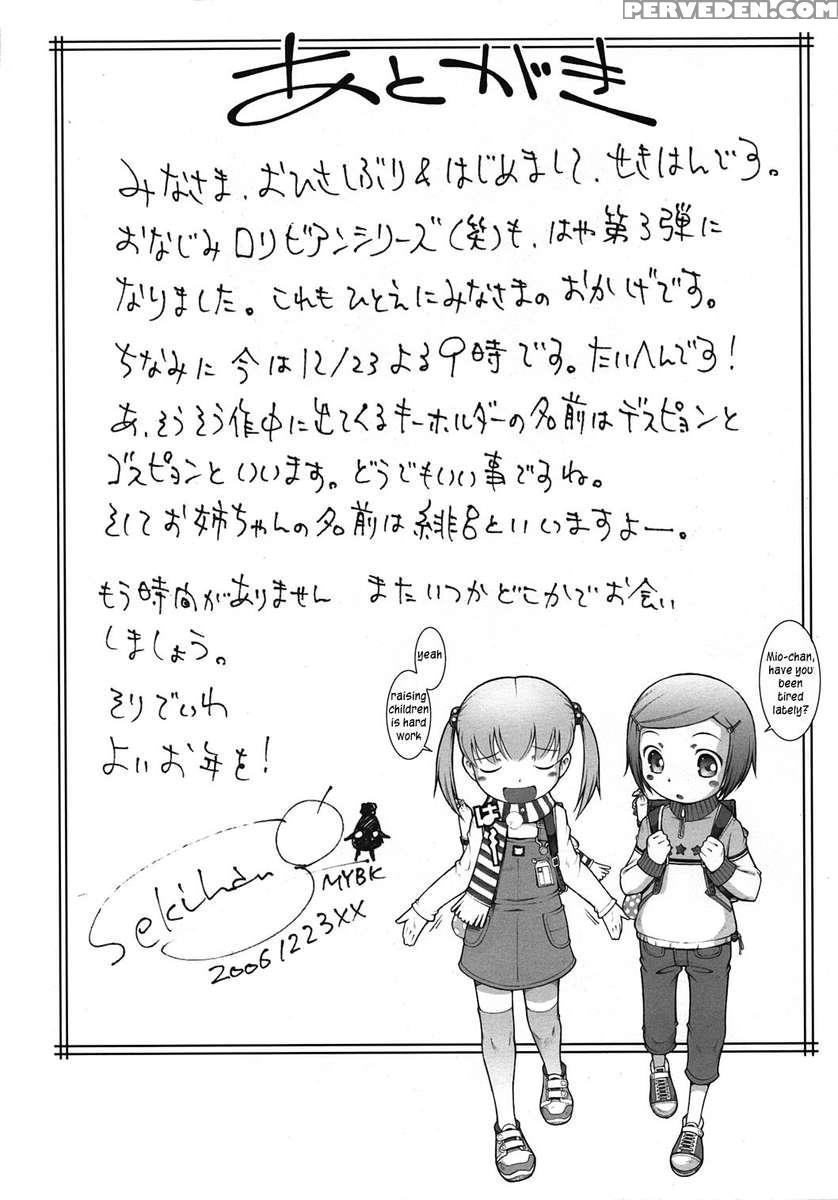 PERVEDEN.COM
あとがき
みなさま、おひさしぶり&はじめまして、せきはんです。
おなじみロリビアンシリーズ(笑)も、はや第3弾に
なりました。これもひとえにみなさまのおかげです。
ちなみに今は12/23よる9時です。たいへんです!
あ、そうそう作中に出てくるキーホルダーの名前はデスピョンと
ゴスピョンといいます。どうでもいい事ですね。
そしてお姉ちゃんの名前は緋呂といいますよー。
もう時間がありません またいつかどこかでお会い
しましょう。
そりでいわ
よいお年を!
Mio-chan,
have you
been
tired
lately?
yeah
raising
children
is hard
work
は
Sekihan
MYBK
20061223XX